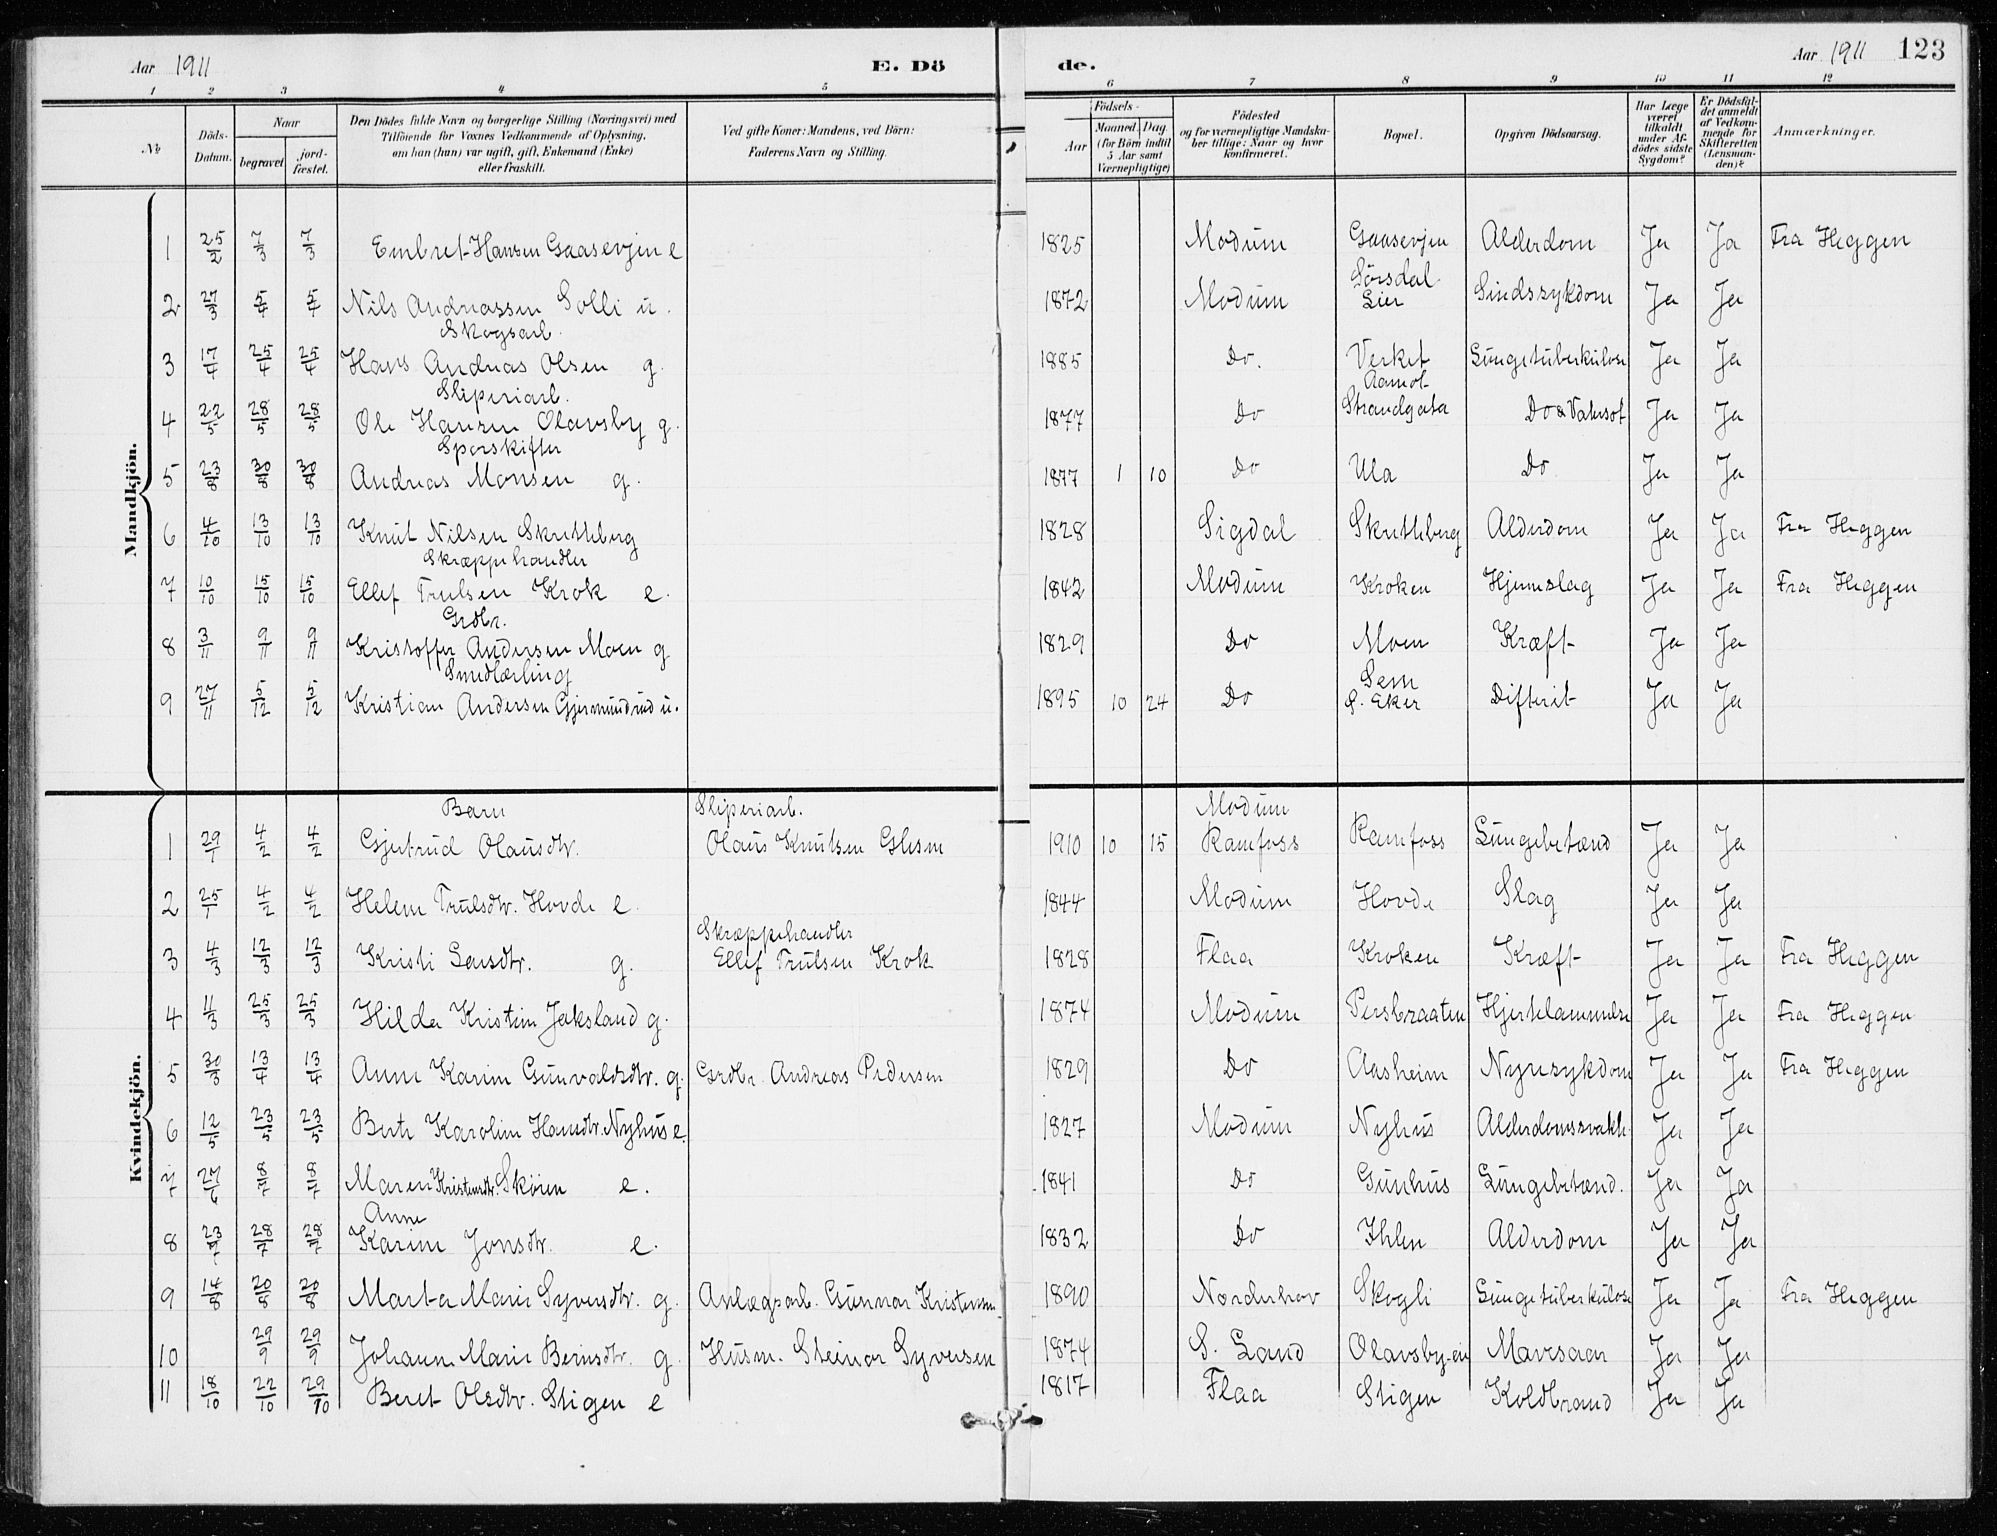 Aar 1911 E. Dö de. Aar 1911 123
1 2 3 4 5 6 7 8 9 10 11 12
№ Döds-Datum. Naar begravet jord-fæstet. Den Dödes fulde Navn og borgerlige Stilling (Næringsvei) med Tilföiende for Voxnes Vedkommende af Oplysning, om han (hun) var ugift, gift, Enkemand (Enke) eller fraskilt. Ved gifte Koner: Mandens, ved Börn: Faderens Navn og Stilling. Födsels- Aar Maaned. Dag. (for Börn indtil 5 Aar samt Værnepligtige) Födested og for værnepligtige Mandskaber tillige: Naar og hvor konfirmeret. Bopæl. Opgiven Dödsaarsag. Har Læge været tilkaldt under Afdödes sidste Sygdom? Er Dödsfaldet anmeldt af Vedkommende for Skifteretten (Lensmanden)? Anmærkninger.
Mandkjön.
1 25/2 7/3 7/3 Embret Hansen Gaasevjen e 1825 Modum Gaasevjen Alderdom Ja Ja Fra Heggen
2 27/3 5/4 5/4 Nils Andreassen Solli u. 1872 Modum Sørsdal Lier Sindssykdom Ja Ja
Skogsarb.
3 17/4 25/4 25/4 Hans Andreas Olsen g. 1885 Do. Verket Lungetuberkulose Ja Ja
Sliperiarb. Aamot
4 22/5 28/5 28/5 Ole Hansen Olavsby g. 1877 Do Strandgata Do & Vatersot Ja Ja
Sporskifter
5 23/8 30/8 30/8 Andreas Monsen g. 1877 1 10 Do Ula Do Ja Ja
6 4/10 13/10 13/10 Knut Nilsen Skretteberg 1828 Sigdal Skretteberg Alderdom Ja Ja Fra Heggen
Skræppehandler
7 10/10 15/10 15/10 Ellef Trulsen Krok e. 1842 Modum Kroken Hjerneslag Ja Ja Fra Heggen
Grdbr.
8 3/11 9/11 9/11 Kristoffer Andersen Moen g 1829 Do Moen Kræft Ja Ja
Smedlærling
9 27/11 5/12 5/12 Kristian Andersen Gjermundrud u. 1895 10 24 Do Sem S. Eker Difterit Ja Ja
Kvindekjön.
Barn Sliperiarb. Modum
1 29/1 4/2 4/2 Gjertrud Olausdtr. Olaus Knutsen Glesne 1910 10 15 Ramfoss Ramfoss Lungebetænd Ja Ja
2 25/1 4/2 4/2 Helene Trulsdtr. Hovde e. 1844 Modum Hovde Slag Ja Ja
Skræppehandler
3 4/3 12/3 12/3 Kristi Larsdtr. g. Ellef Trulsen Krok 1828 Flaa Kroken Kræft Ja Ja Fra Heggen
4 11/3 25/3 25/3 Hilda Kristine Jaksland g. 1874 Modum Persbraaten Hjertelammelse Ja Ja Fra Heggen
5 30/3 13/4 13/4 Anne Karine Gunvaldsdtr. g. Grdbr. Andreas Pedersen 1829 Do Aasheim Nyresykdom Ja Ja Fra Heggen
6 12/5 23/5 23/5 Berte Karoline Hansdtr. Nyhus e 1827 Modum Nyhus Alderdomssvakh. Ja Ja
7 27/6 8/7 8/7 Maren Kristensdtr. Skøien e. 1841 Do Gunhus Lungebetænd. Ja Ja
Anne
8 23/7 28/7 28/7 Karine Jonsdtr. e. 1832 Do Ihlen Alderdom Ja Ja
9 14/8 20/8 20/8 Marta Marie Syversdtr. g. Anlægsarb. Gunnar Kristensen 1890 Norderhov Skogli Lungetuberkulose Ja Ja Fra Heggen
10 29/9 29/9 Johanne Marie Berntsdtr. g. Husm. Steinar Syversen 1874 S. Land Olavsby-eie Mavesaar Ja Ja
11 18/10 22/10 29/10 Beret Olsdtr. Stigen e 1817 Flaa Stigen Koldbrand Ja Ja